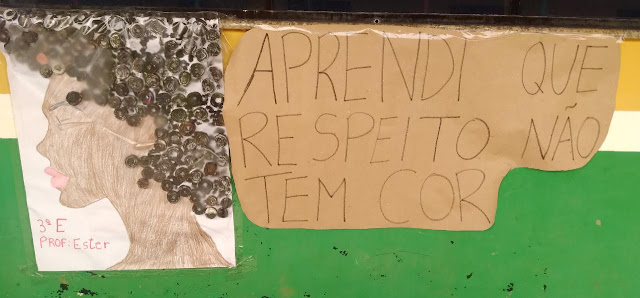 APRENDI QUE
RESPEITO NÃO
TEM COR
3ª E
PROF: Ester